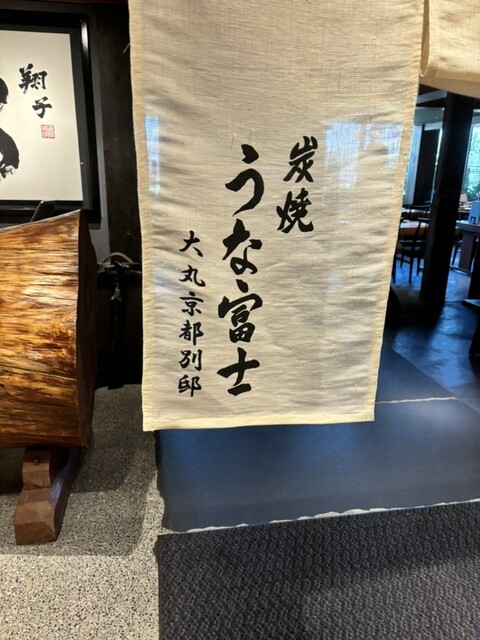 炭焼
うな富士
大丸京都別邸
翔子